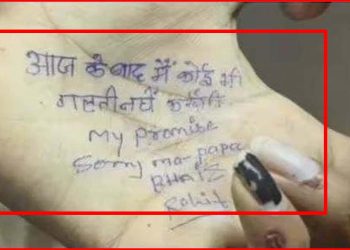 आज के बाद मैं कोई भी
गलती नहीं करूँगी
My Promise
Sorry ma-papa
Rohit